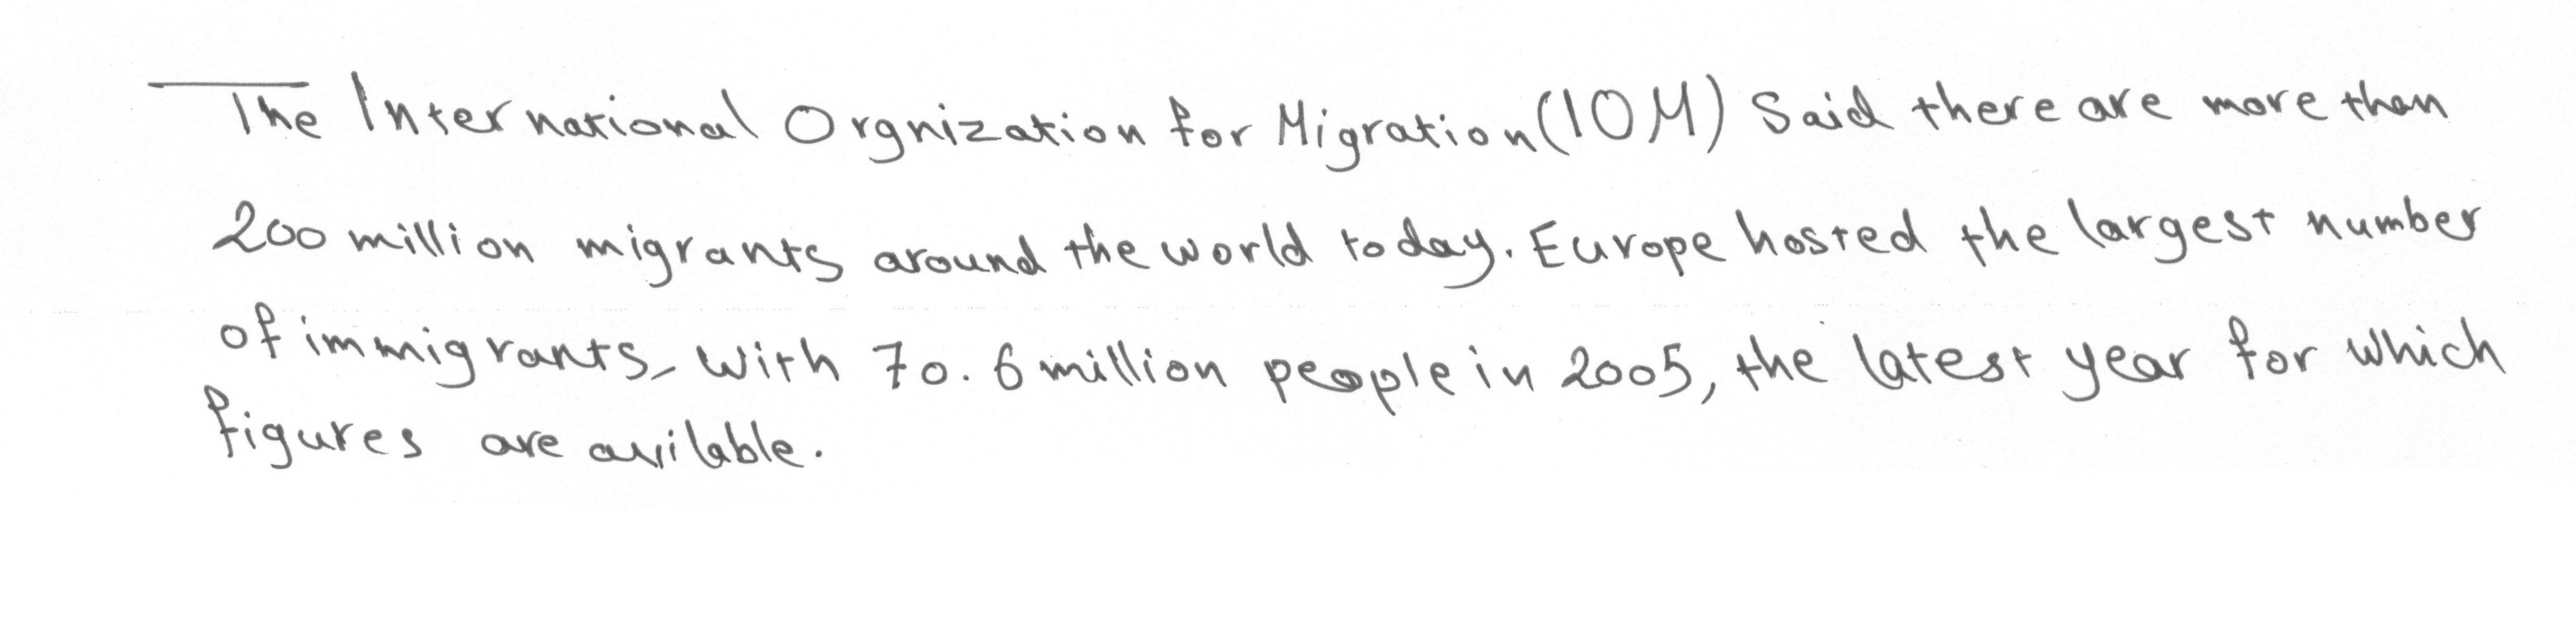 The International Orgnization for Migration (IOM) Said there are more than
200 million migrants around the world today. Europe hosted the largest number
of immigrants, With 70.6 million people in 2005, the latest year for which
figures are avilable.